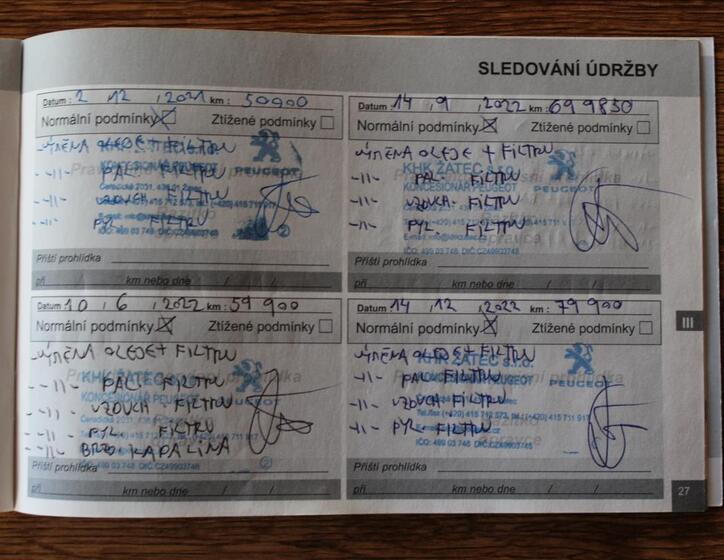 SLEDOVÁNÍ ÚDRŽBY
Datum: 2 , 12 , 2021 km: 50900
Normální podmínky Ztížené podmínky
-VÝMĚNA OLEJE + FILTRU
-11- PAL. FILTRU
-11- VZDUCH. FILTRU
-11- PYL. FILTRU
KHK ŽATEC s.r.o.
KONCESIONÁŘ PEUGEOT
PEUGEOT
IČO: 499 03 748 DIČ:CZ49903748
Příští prohlídka
při km nebo dne / /
Datum: 10 , 6 , 2022 km: 59 900
Normální podmínky Ztížené podmínky
-VÝMĚNA OLEJE + FILTRU
-11- PAL. FILTRU
-11- VZDUCH FILTRU
-11- PYL. FILTRU
-11- BRZD KAPALINA
KHK ŽATEC s.r.o.
KONCESIONÁŘ PEUGEOT
PEUGEOT
IČO: 499 03 748 DIČ:CZ49903748
Příští prohlídka
při km nebo dne / /
Datum: 14 , 9 , 2022 km: 699850
Normální podmínky Ztížené podmínky
VÝMĚNA OLEJE + FILTRU
-11- PAL. FILTRU
-11- VZDUCH. FILTRU
-11- PYL. FILTRU
KHK ŽATEC s.r.o.
KONCESIONÁŘ PEUGEOT
PEUGEOT
IČO: 499 03 748 DIČ:CZ49903748
Příští prohlídka
při km nebo dne / /
Datum: 14 , 12 , 2022 km: 79 900
Normální podmínky Ztížené podmínky
VÝMĚNA OLEJE + FILTRU
-11- PAL. FILTRU
-11- VZDUCH. FILTRU
-11- PYL. FILTRU
KHK ŽATEC s.r.o.
KONCESIONÁŘ PEUGEOT
PEUGEOT
IČO: 499 03 748 DIČ:CZ49903748
Příští prohlídka
při km nebo dne / /
III
27